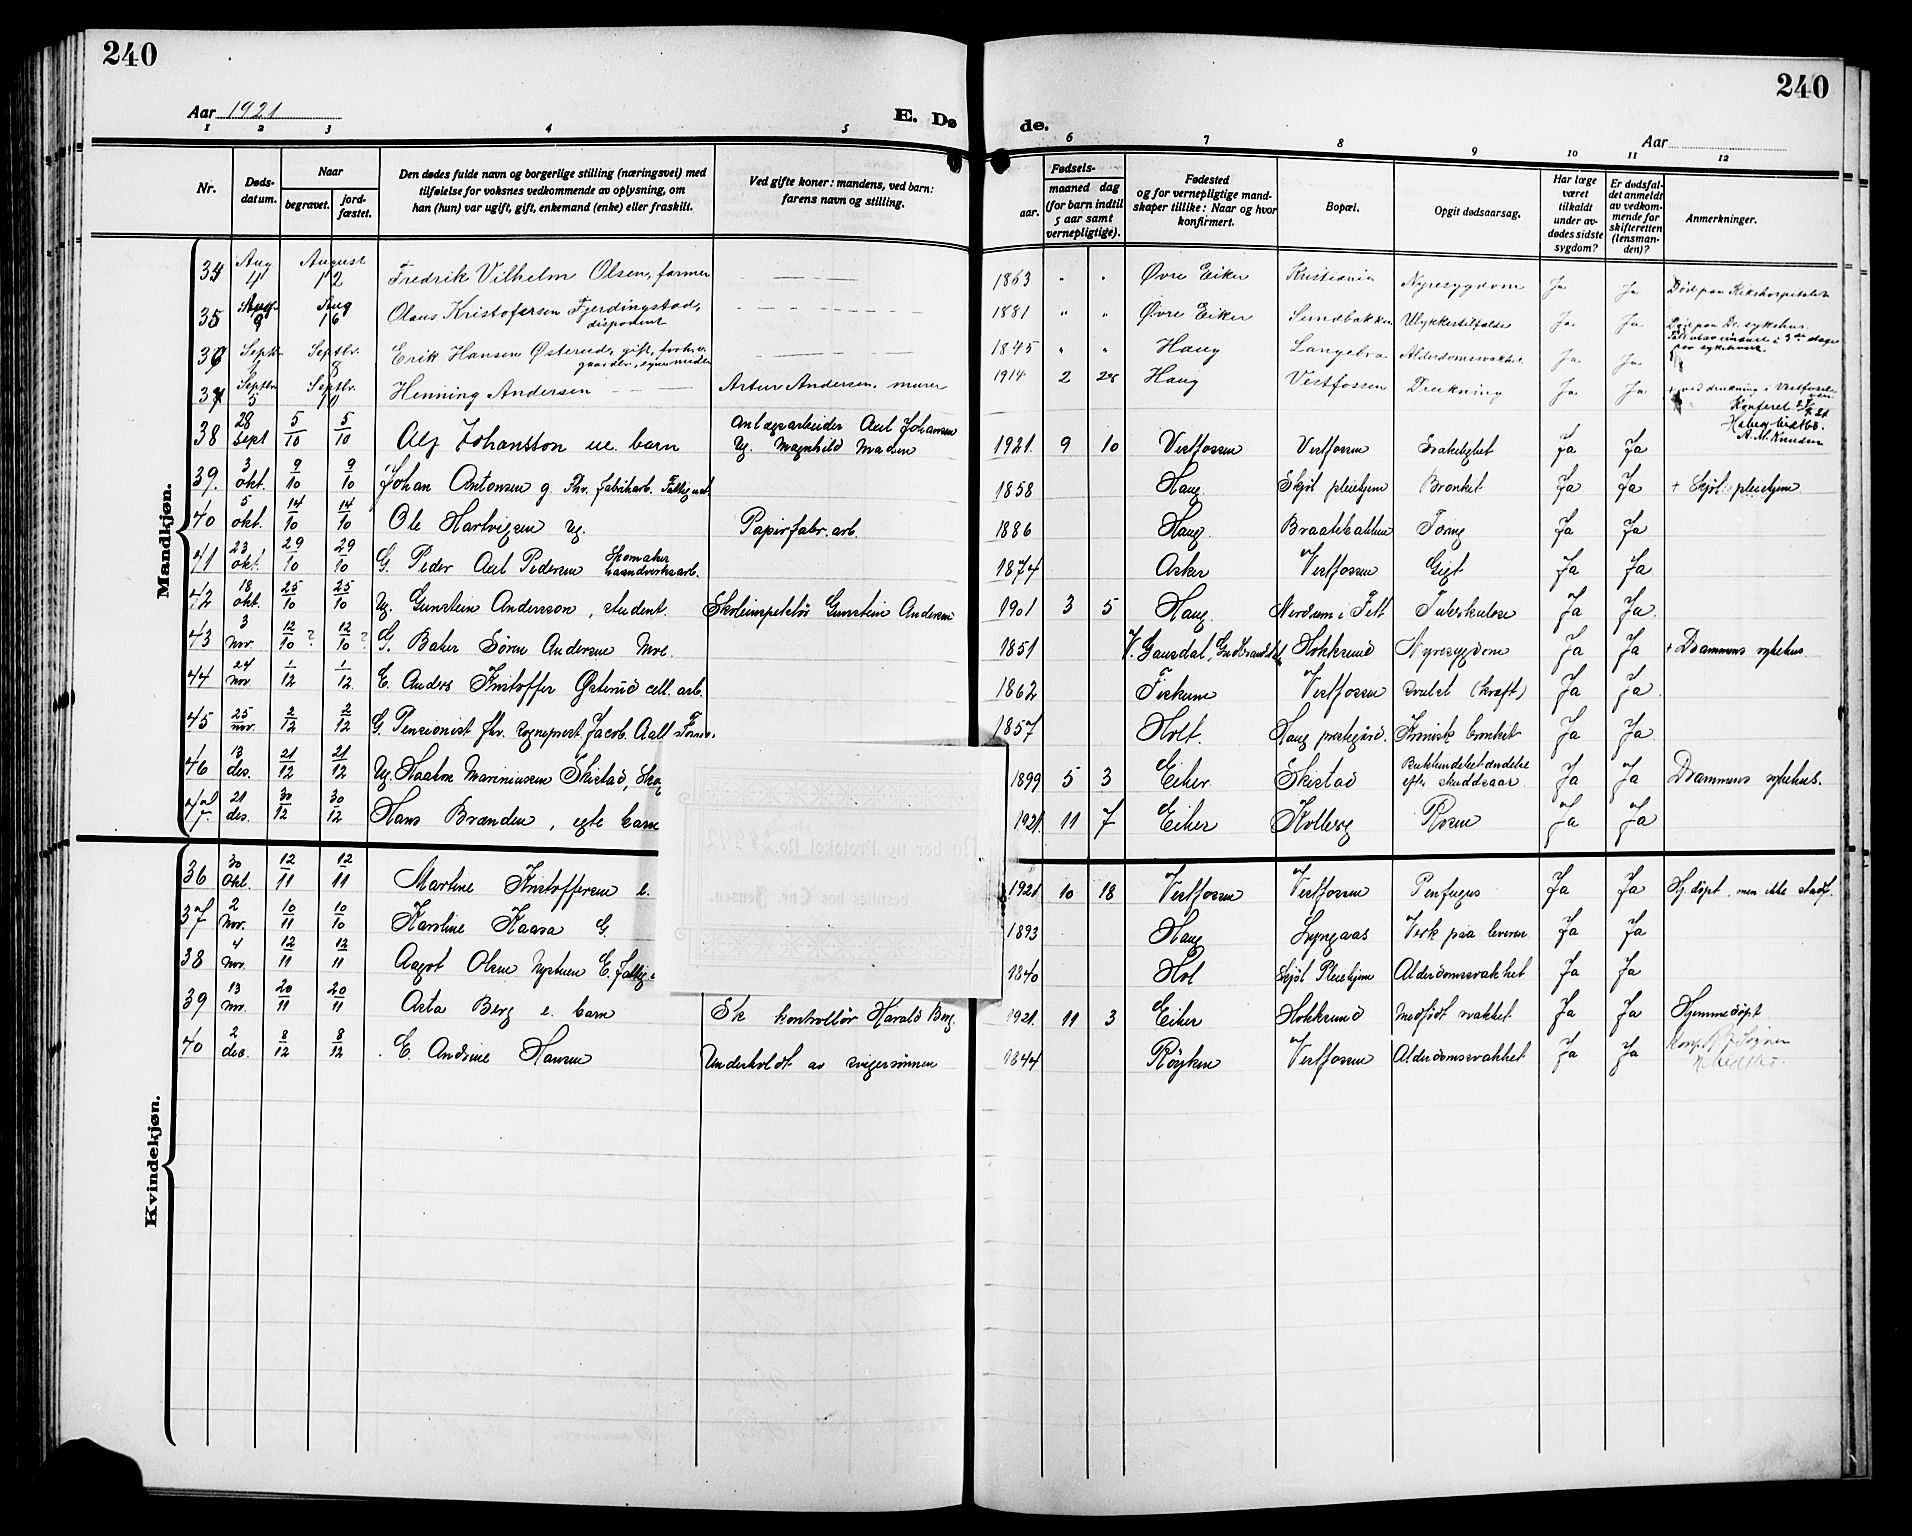 240
Aar 1921
E. Dø
1 2 3 4 5
Nr.
Døds-
datum.
Naar
begravet.
jord-
fæstet.
Den dødes fulde navn og borgerlige stilling (næringsvei) med
tilføielse for voksnes vedkommende av oplysning, om
han (hun) var ugift, gift, enkemand (enke) eller fraskilt.
Ved gifte koner: mandens, ved barn:
farens navn og stilling.
240
de.
Aar
6 7 8 9 10 11 12
Fødsels-
aar.
maaned dag
(for barn indtil
5 aar samt
vernepligtige).
Fødested
og for vernepligtige mand-
skaper tillike: Naar og hvor
konfirmert.
Bopæl.
Opgit dødsaarsag.
Har læge
været
tilkaldt
under av-
dødes sidste
sygdom?
Er dødsfal-
det anmeldt
av vedkom-
mende for
skifteretten
(lensman-
den)?
Anmerkninger.
Mandkjøn.
34 Aug 4 August 12 Fredrik Vilhelm Olsen, farmer 1863 " " Øvre Eiker Kristiania Nyresygdom Ja Ja Død paa Rikshospitalet
35 Aug 9 Aug 16 Olaus Kristofersen Fjerdingstad, disponent 1881 " " Øvre Eiker Sundbakken Ulykkestilfælde Ja Ja Død paa Dr. sykehus.
36 Septbr. 1 Septbr. 8 Erik Hansen Østerud, gift, forhv. gaardbr. 1845 " " Haug Alderdomssvakhet Ja Ja
37 Septbr 5 Septbr. 10 Henning Andersen Artur Andersen, murer 1914 2 Haug Vestfossen Drukning Ja Ja + ved drukning i Vestfoselven
Konferet
A. M. Knudsen
38 28 sept 5/10 5/10 Alf Johanston ue. barn Anlægsarbeider Aul Johansen Ug. Magnhild Maden 1921 9 10 Vestfossen Vestfossen Svakelighet Ja Ja
39. 3 okt. 9/10 9/10 Johan Antonsen g. Fhv. fabrikarb. Fattig unt. 1858 Haug Skjøl pleiehjem Bronkit Ja Ja + Skjøl pleiehjem
40 5 okt. 14/10 14/10 Ole Hartvigsen ug. Papirfabr. arb. 1886 Haug. Braatebakken Ja Ja
41 23 okt. 29/10 29/10 G. Peder Aul Pedersen Skomaker haandverksarb. 1874 Asker Vestfossen Gigt Ja Ja
42 18 okt. 25/10 25/10 Ug. Gunstein Andersson, student. Skoleinspektør Gunstein Andersen 1901 3 5 Haug. Nordum i Fett Tuberkulose Ja Ja.
43 3 nov. 12/10 ? 12/10 ? G. Baker Søren Andersen Moe. 1851 V. Gausdal, Gudbrandsdal Hokksund Nyresygdom Ja Ja + Drammens sykehus.
44 24 nov 1/12 1/12 E. Anders Kristoffer Østerud cell. arb. 1862 Fiskum Vestfossen svulst (kræft) Ja Ja.
45 25 nov. 2/12 2/12 G. Pensionist fhv. sogneprest Jacob Aall 1857 Holt. Haug prestegård. Kronisk bronkit Ja Ja.
46 13 des. 21/12 21/12 Ug. Haakon Marinussen Skistad, 1899 5 3 Eiker Skistad Bukhindebetændelse efter skuddsaar Ja Ja Drammens sykehus.
47 21 des. 30/12 30/12 Hans Brænden, egte barn 1921. 11 7 Eiker Kolberg Rosen Ja Ja
Kvindekjøn.
36 30 Okt. 12/11 12/11 Martine Kristoffersen e. 1921 10 18 Vestfossen Vestfossen Penfugus Ja Ja Hj.døpt, men ikke stadf.
37 2 Nov. 10/11 10/10 Karoline Kaasa G 1893 Haug Lyngaas Verk paa leveren Ja Ja
38 4 nov. 12/11 12/11 Aagot Olsen Nystuen E. Fattig 1840 Hol Skjøl Pleiehjem Alderdomssvakhet Ja Ja
39 13 nov. 20/11 20/11 Asta Berg e. barn Sk kontrollør Harald Berg. 1921. 11 3 Eiker Hokksund Medfødt svakhet Ja Ja Hjemmedøpt
40 2 dec. 8/12 8/12 E. Andrine Hansen Underholdt av svigersønnen 1844 Røyken Vestfossen Alderdomssvakhet Ja Ja
Du bør
Protokol No.
bestilles hos Chr. Jensen.